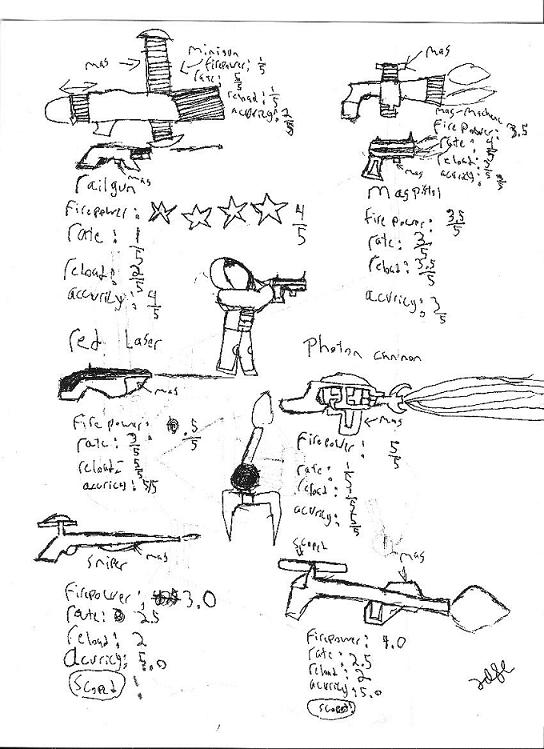 mas
minigun
firepower: 1/5
rate: 5/5
reload: 1/5
accuricy: 2/5
mas
mas-machene
fire power: 3.5
rate: 4/5
reload:
accuricy:
mas
railgun
firepower: 4/5
rate: 1/5
reload: 2/5
accuricy: 4/5
mas
maspistol
fire power: 3.5/5
rate: 3/5
reload: 3.5/5
accuricy: 3/5
red Laser
mas
Firepower: .5/5
rate: 3/5
reload: 5/5
accuricy: 5/5
Photon cannon
mas
firepower: 5/5
rate: 1/5
reload:
accuricy:
mas
sniper
firepower: 3.0
rate: 2.5
reload: 2
accuricy: 5.0
scoped
scoped
mas
firepower: 4.0
rate: 2.5
reload: 2
accuricy: 5.0
scoped